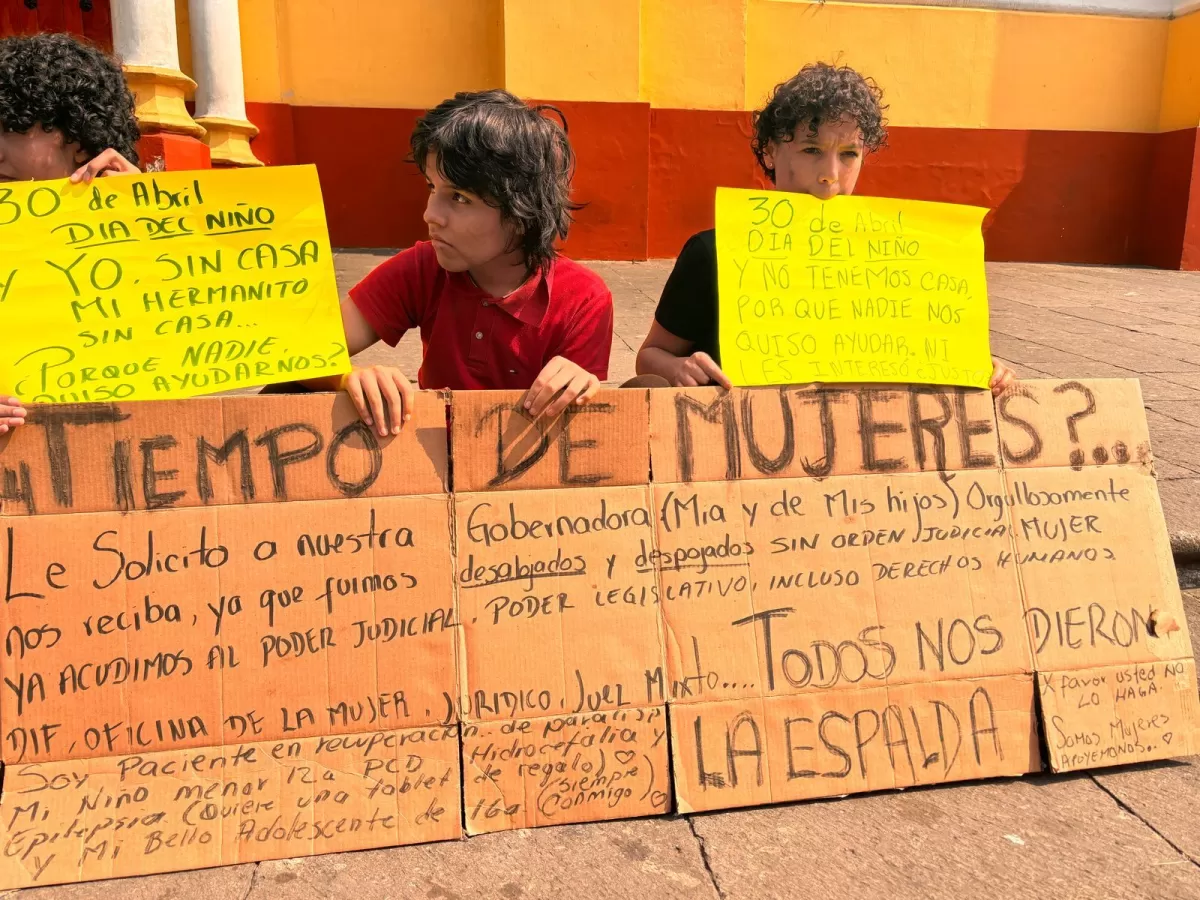 30 de Abril
DIA DEL NIÑO
Y YO, SIN CASA
MI HERMANITO
SIN CASA...
¿PORQUE NADIE,
QUISO AYUDARNOS?
30 de Abril
DIA DEL NIÑO
Y NO TENEMOS CASA,
PORQUE NADIE NOS
QUISO AYUDAR. NI
LES INTERESÓ
¿TIEMPO DE MUJERES?...
Le Solicito a nuestra Gobernadora (Mia y de Mis hijos) Orgullosamente MUJER
nos reciba, ya que fuimos desalojados y despojados SIN ORDEN JUDICIAL
YA ACUDIMOS AL PODER JUDICIAL, PODER LEGISLATIVO, INCLUSO DERECHOS HUMANOS
DIF, OFICINA DE LA MUJER, JURIDICO, Juez Mixto.... TODOS NOS DIERON
LA ESPALDA
Soy Paciente en recuperación.. de
Mi Niño menor 12a PCD Hidrocefalia y
Epilepsia (Quiere una tablet de regalo) ♡
y Mi Bello Adolescente de 16a (siempre
conmigo) ♡
X favor usted NO
LO HAGA.
Somos Mujeres
APOYEMONOS.. ♡